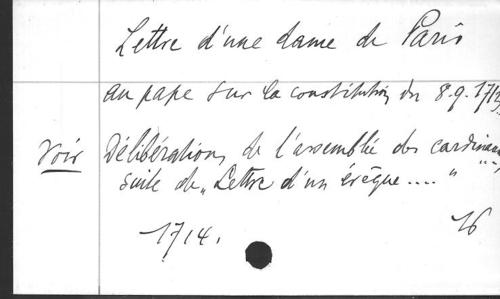 Lettre d'une dame de Paris
au pape sur la constitution du 8.9.1713
Voir Délibérations de l'assemblée des cardinaux,
suite de „Lettre d'un évêque...."
16
1714.